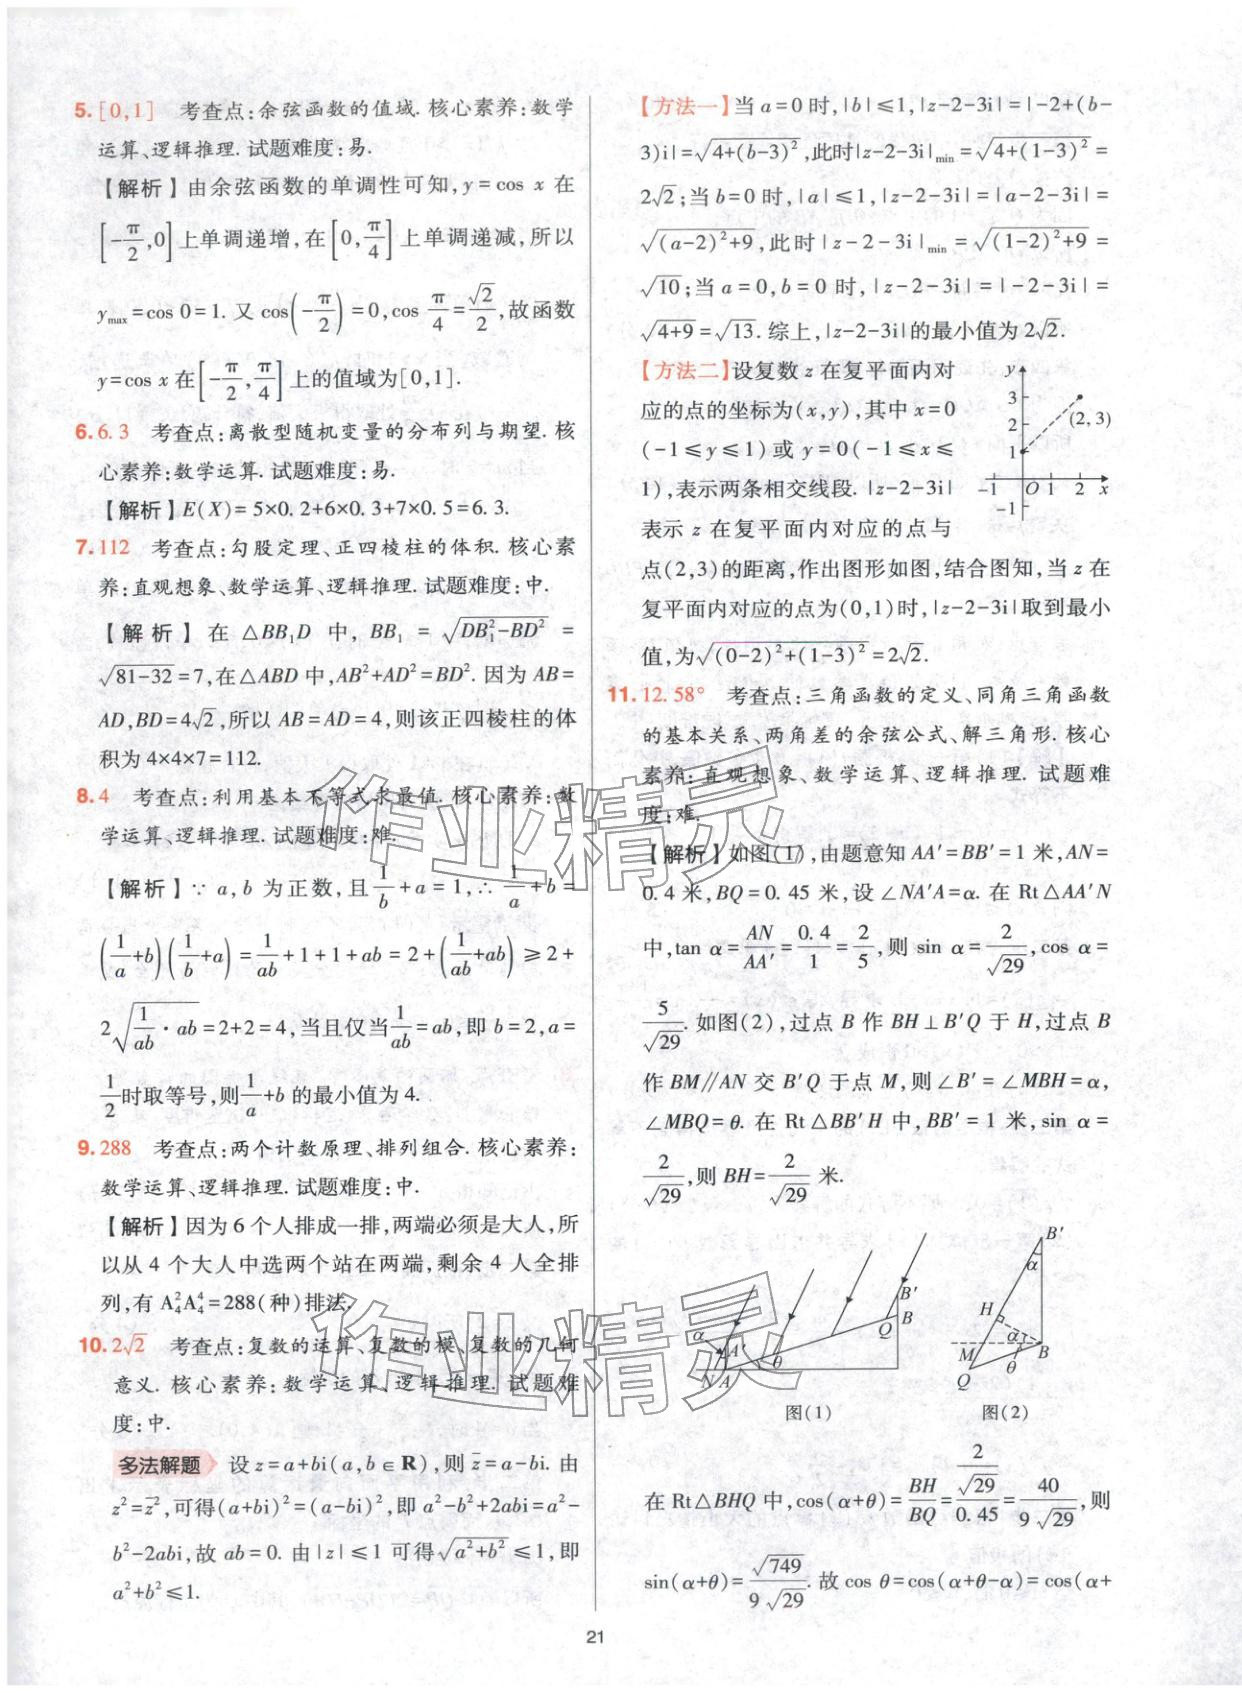 5. [0,1]　考查点:余弦函数的值域. 核心素养:数学
运算、逻辑推理. 试题难度:易.
【解析】由余弦函数的单调性可知, y=cos x 在
[-π/2,0]上单调递增,在[0,π/4]上单调递减,所以
y_max=cos 0=1. 又 cos(-π/2)=0,cos π/4=√2/2,故函数
y=cos x 在[-π/2,π/4]上的值域为[0,1].
6. 6.3　考查点:离散型随机变量的分布列与期望. 核
心素养:数学运算. 试题难度:易.
【解析】E(X)=5×0.2+6×0.3+7×0.5=6.3.
7. 112　考查点:勾股定理、正四棱柱的体积. 核心素
养:直观想象、数学运算、逻辑推理. 试题难度:中.
【解析】在△BB₁D 中, BB₁=√(DB₁²-BD²)=
√(81-32)=7,在△ABD 中,AB²+AD²=BD². 因为 AB=
AD,BD=4√2,所以 AB=AD=4,则该正四棱柱的体
积为 4×4×7=112.
8. 4　考查点:利用基本不等式求最值. 核心素养:数
学运算、逻辑推理. 试题难度:难.
【解析】∵ a,b 为正数,且 1/b+a=1,∴ 1/a+b=
(1/a+b)(1/b+a)=1/ab+1+1+ab=2+(1/ab+ab)≥2+
2√(1/ab·ab)=2+2=4,当且仅当1/ab=ab,即 b=2,a=
1/2时取等号,则1/a+b 的最小值为 4.
9. 288　考查点:两个计数原理、排列组合. 核心素养:
数学运算、逻辑推理. 试题难度:中.
【解析】因为 6 个人排成一排,两端必须是大人,所
以从 4 个大人中选两个站在两端,剩余 4 人全排
列,有 A₄²A₄⁴=288(种)排法.
10. 2√2　考查点:复数的运算、复数的模、复数的几何
意义. 核心素养:数学运算、逻辑推理. 试题难
度:中.
多法解题　设 z=a+bi(a,b∈R),则 z̄=a-bi. 由
z²=z̄²,可得(a+bi)²=(a-bi)²,即 a²-b²+2abi=a²-
b²-2abi,故 ab=0. 由|z|≤1 可得√(a²+b²)≤1,即
a²+b²≤1.
【方法一】当 a=0 时,|b|≤1,|z-2-3i|=|-2+(b-
3)i|=√(4+(b-3)²),此时|z-2-3i|_min=√(4+(1-3)²)=
2√2;当 b=0 时,|a|≤1,|z-2-3i|=|a-2-3i|=
√((a-2)²+9),此时|z-2-3i|_min=√((1-2)²+9)=
√10;当 a=0,b=0 时,|z-2-3i|=|-2-3i|=
√(4+9)=√13. 综上,|z-2-3i|的最小值为 2√2.
【方法二】设复数 z 在复平面内对
应的点的坐标为(x,y),其中 x=0
(-1≤y≤1)或 y=0(-1≤x≤
1),表示两条相交线段. |z-2-3i|
表示 z 在复平面内对应的点与
点(2,3)的距离,作出图形如图,结合图知,当 z 在
复平面内对应的点为(0,1)时,|z-2-3i|取到最小
值,为√((0-2)²+(1-3)²)=2√2.
y
3
2
1
(2,3)
-1 O 1 2 x
-1
11. 12.58°　考查点:三角函数的定义、同角三角函数
的基本关系、两角差的余弦公式、解三角形. 核心
素养:直观想象、数学运算、逻辑推理. 试题难
度:难.
【解析】如图(1),由题意知 AA′=BB′=1 米,AN=
0.4 米,BQ=0.45 米,设∠NA′A=α. 在 Rt△AA′N
中,tan α=AN/AA′=0.4/1=2/5,则 sin α=2/√29,cos α=
5/√29. 如图(2),过点 B 作 BH⊥B′Q 于 H,过点 B
作 BM∥AN 交 B′Q 于点 M,则∠B′=∠MBH=α,
∠MBQ=θ. 在 Rt△BB′H 中,BB′=1 米,sin α=
2/√29,则 BH=2/√29 米.
B′
B
Q
α
A′
θ
N A
图(1)
B′
α
H
α
M
θ
B
Q
图(2)
在 Rt△BHQ 中,cos(α+θ)=BH/BQ=(2/√29)/0.45=40/(9√29),则
sin(α+θ)=√749/(9√29). 故 cos θ=cos(α+θ-α)=cos(α+
21
作业精灵
作业精灵